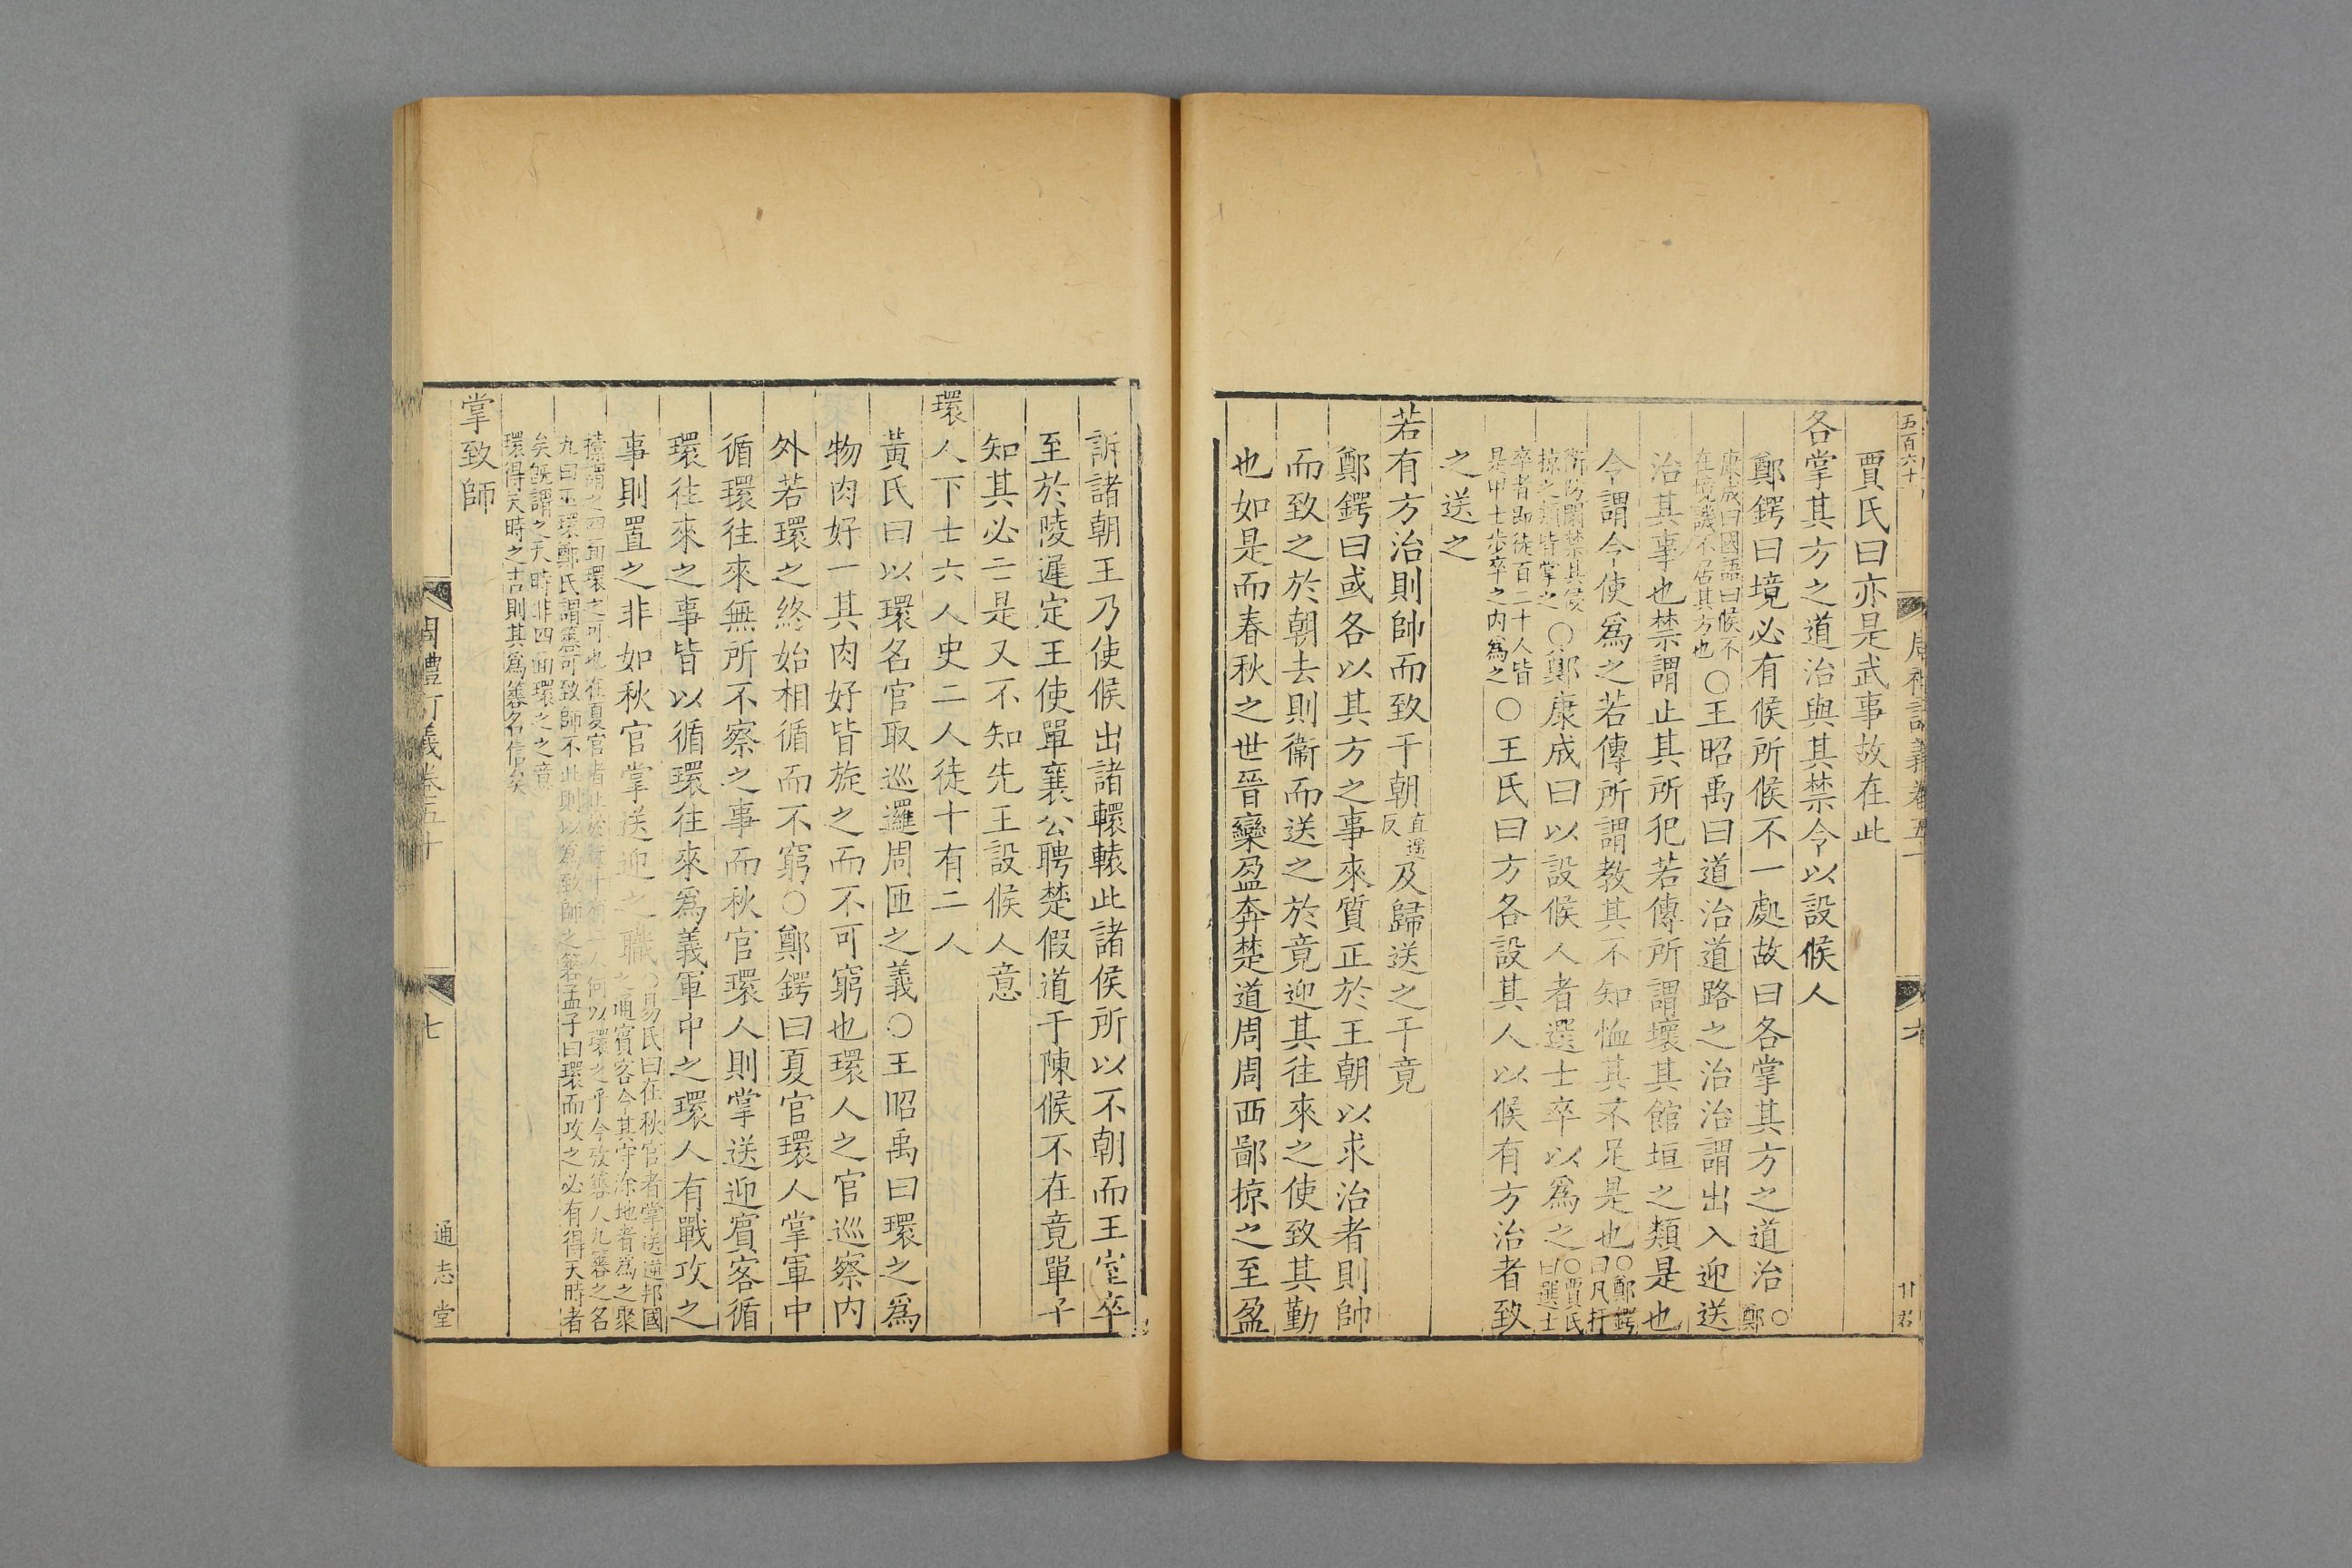 五百六十
周禮訂義卷五十
六
賈氏曰亦是武事故在此
各掌其方之道治與其禁令以設候人
鄭鍔曰境必有候所候不一處故曰各掌其方之道治○鄭
康成曰國語曰候不
在境譏不居其方也○王昭禹曰道治道路之治治謂出入迎送
治其事也禁謂止其所犯若傳所謂壞其館垣之類是也
今謂令使為之若傳所謂教其不知恤其不足是也○鄭鍔曰凡扞
衛防閑禁其侵
掠之類皆掌之○鄭康成曰以設候人者選士卒以為之○賈氏曰選士
卒者即徒百二十人皆
是甲士步卒之內為之○王氏曰方各設其人以候有方治者致
之送之
若有方治則帥而致于朝直遥反及歸送之于竟
鄭鍔曰或各以其方之事來質正於王朝以求治者則帥
而致之於朝去則衞而送之於竟迎其往來之使致其勤
也如是而春秋之世晉欒盈奔楚道周周西鄙掠之至盈
訴諸朝王乃使候出諸轘轅此諸侯所以不朝而王室卒
至於陵遲定王使單襄公聘楚假道于陳候不在竟單子
知其必亡是又不知先王設候人意
環人下士六人史二人徒十有二人
黃氏曰以環名官取巡邏周匝之義○王昭禹曰環之為
物肉好一其肉好皆旋之而不可窮也環人之官巡察內
外若環之終始相循而不窮○鄭鍔曰夏官環人掌軍中
循環往來無所不察之事而秋官環人則掌送迎賓客循
環往來之事皆以循環往來為義軍中之環人有戰攻之
事則置之非如秋官掌送迎之職○易氏曰在秋官者掌送逆邦國
之通賓客令其守涂地者為之聚
㯓謂之四面環之可也在夏官者止於徒十有二人何以環之乎今攷簭人九簭之名
九曰巫環鄭氏謂簭可致師不此則以為致師之簭孟子曰環而攻之必有得天時者
矣旣謂之天時非四面環之之意
環得天時之吉則其為簭名信矣
掌致師
周禮訂義卷五十
七
通志堂